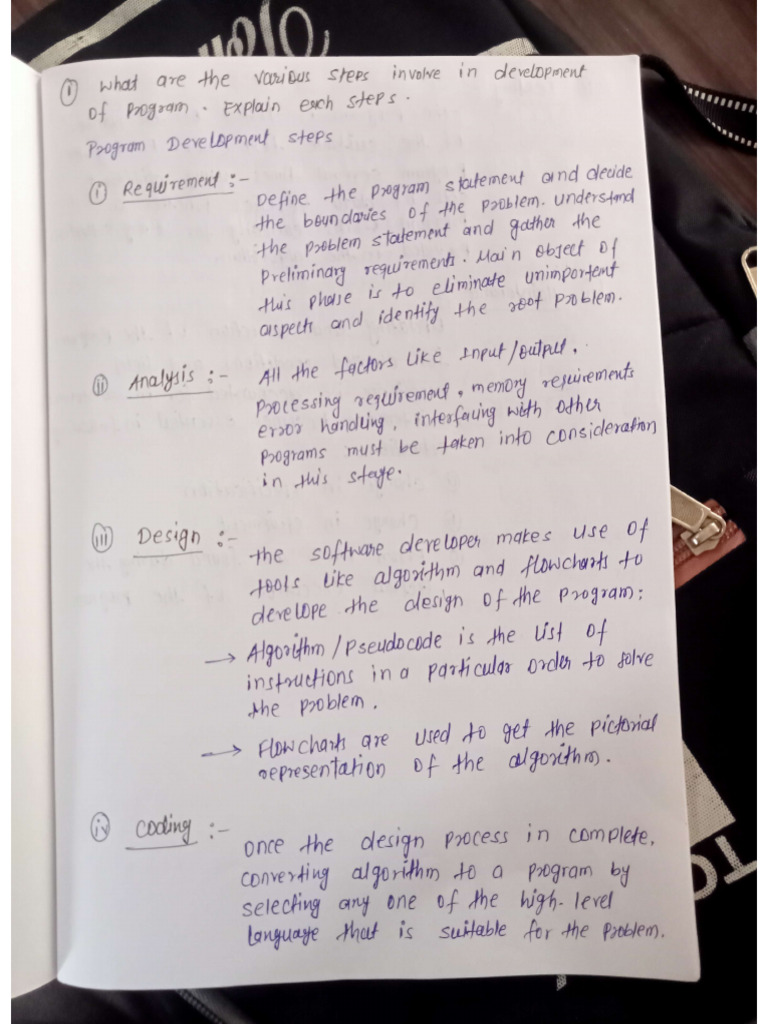 ① What are the various steps involve in development
of Program. Explain each steps.
Program Development steps
(i) Requirement :- Define the Program statement and decide
the boundaries of the problem. Understand
the problem statement and gather the
Preliminary requirements. Main object of
this phase is to eliminate unimportent
aspects and identify the root problem.
(ii) Analysis :- All the factors like Input/output,
Processing requirement, memory requirements
error handling, interfacing with other
Programs must be taken into consideration
in this stage.
(iii) Design :- the software developer makes use of
tools like algorithm and flowcharts to
develope the design of the program;
→ Algorithm / Pseudocode is the list of
instructions in a particular order to solve
the problem.
→ Flowcharts are used to get the pictorial
representation of the algorithm.
(iv) Coding :- Once the design process in complete,
converting algorithm to a program by
selecting any one of the high-level
language that is suitable for the problem.
TO